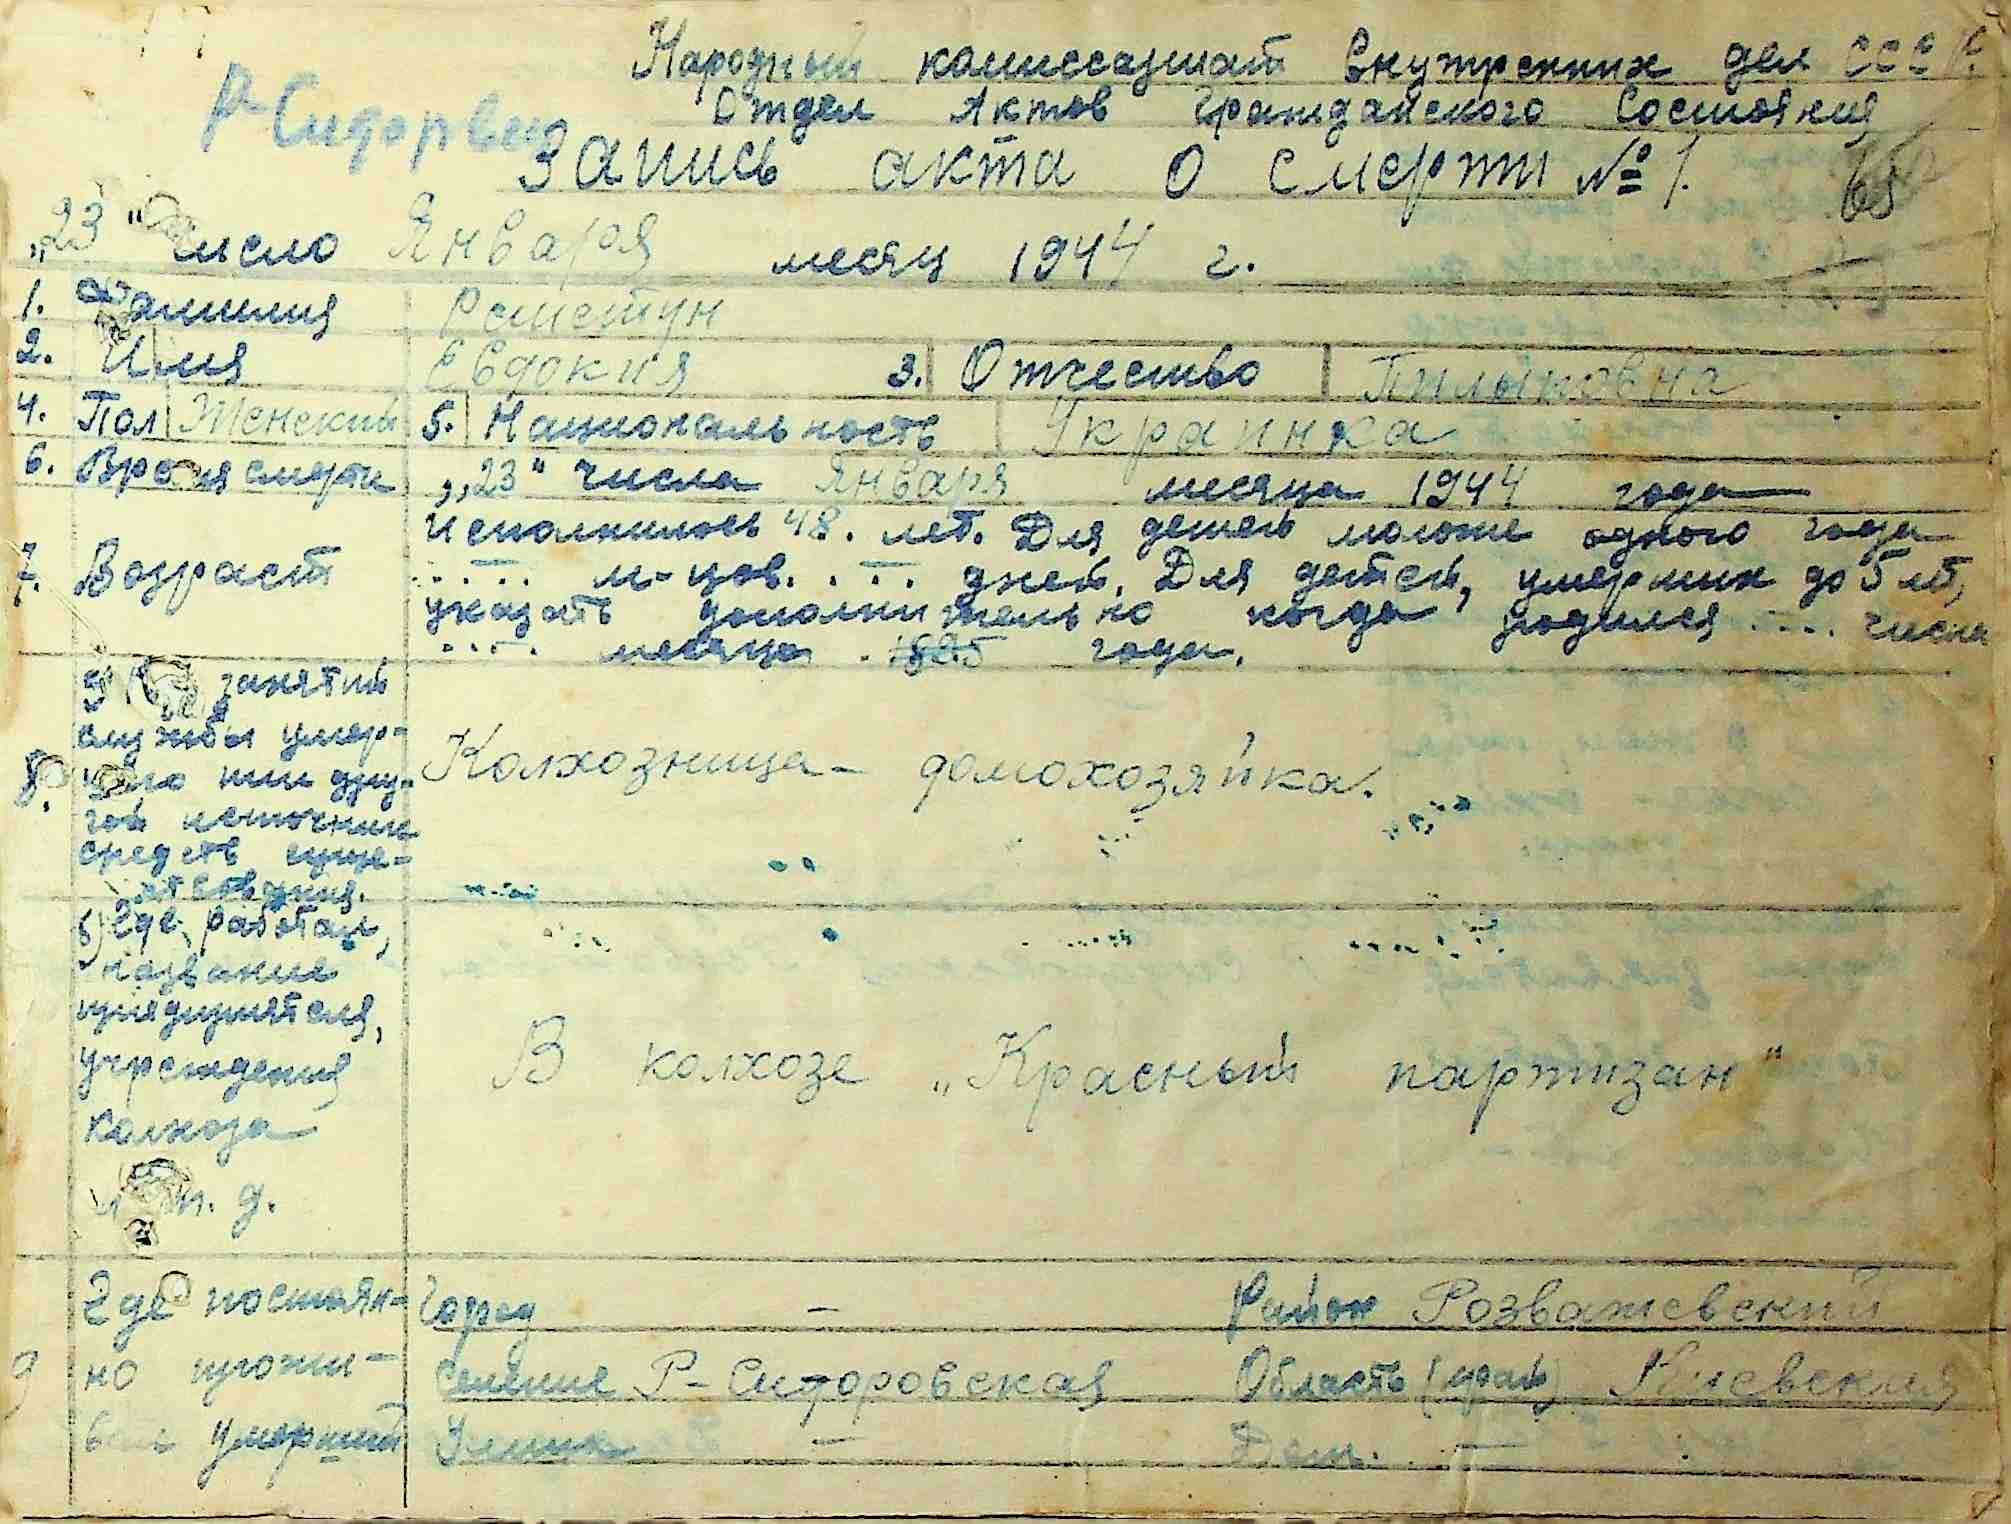 Народный комиссариат Внутренних дел СССР.
Отдел Актов Гражданского Состояния
Р-Сидорвка
Запись акта о смерти № 1.
65
"23" число Января месяц 1944 г.
1. Фамилия
2. Имя Евдокия 3. Отчество Пилыповна
4. Пол Женский 5. Национальность Украинка
6. Время смерти „23" числа Января месяца 1944 года
7. Возраст Исполнилось 48. лет. Для детей моложе одного года
.... м-цов. ... дней. Для детей, умерших до 5 лт,
указать дополнительно когда родился .... числа
.... месяца . 1895 года.
8. занятий
службы умер-
шего или дру-
гой источник
средств суще-
ствования.
Колхозница - домохозяйка.
б) Где работал,
название
предприятия,
учреждения
колхоза
и т. д.
В колхозе „Красный партизан"
9 Где постоян-
но прожи-
вал умерший
Город — Район Розважевский
Селение Р-Сидоровская Область (край) Киевская
Улица — Дом. —